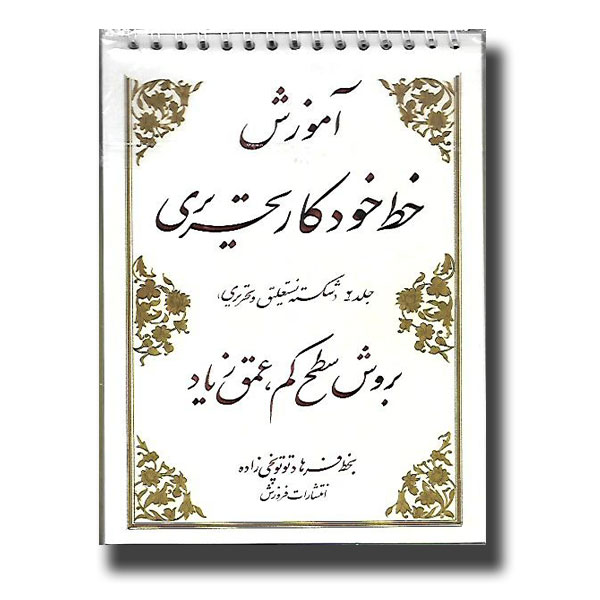 آموزش
خط خودکار تحریری
جلد ۴ (شکسته نستعلیق و تحریری)
بروش سطح کم، عمق زیاد
بخط فرهاد توتونچی زاده
انتشارات فروزش